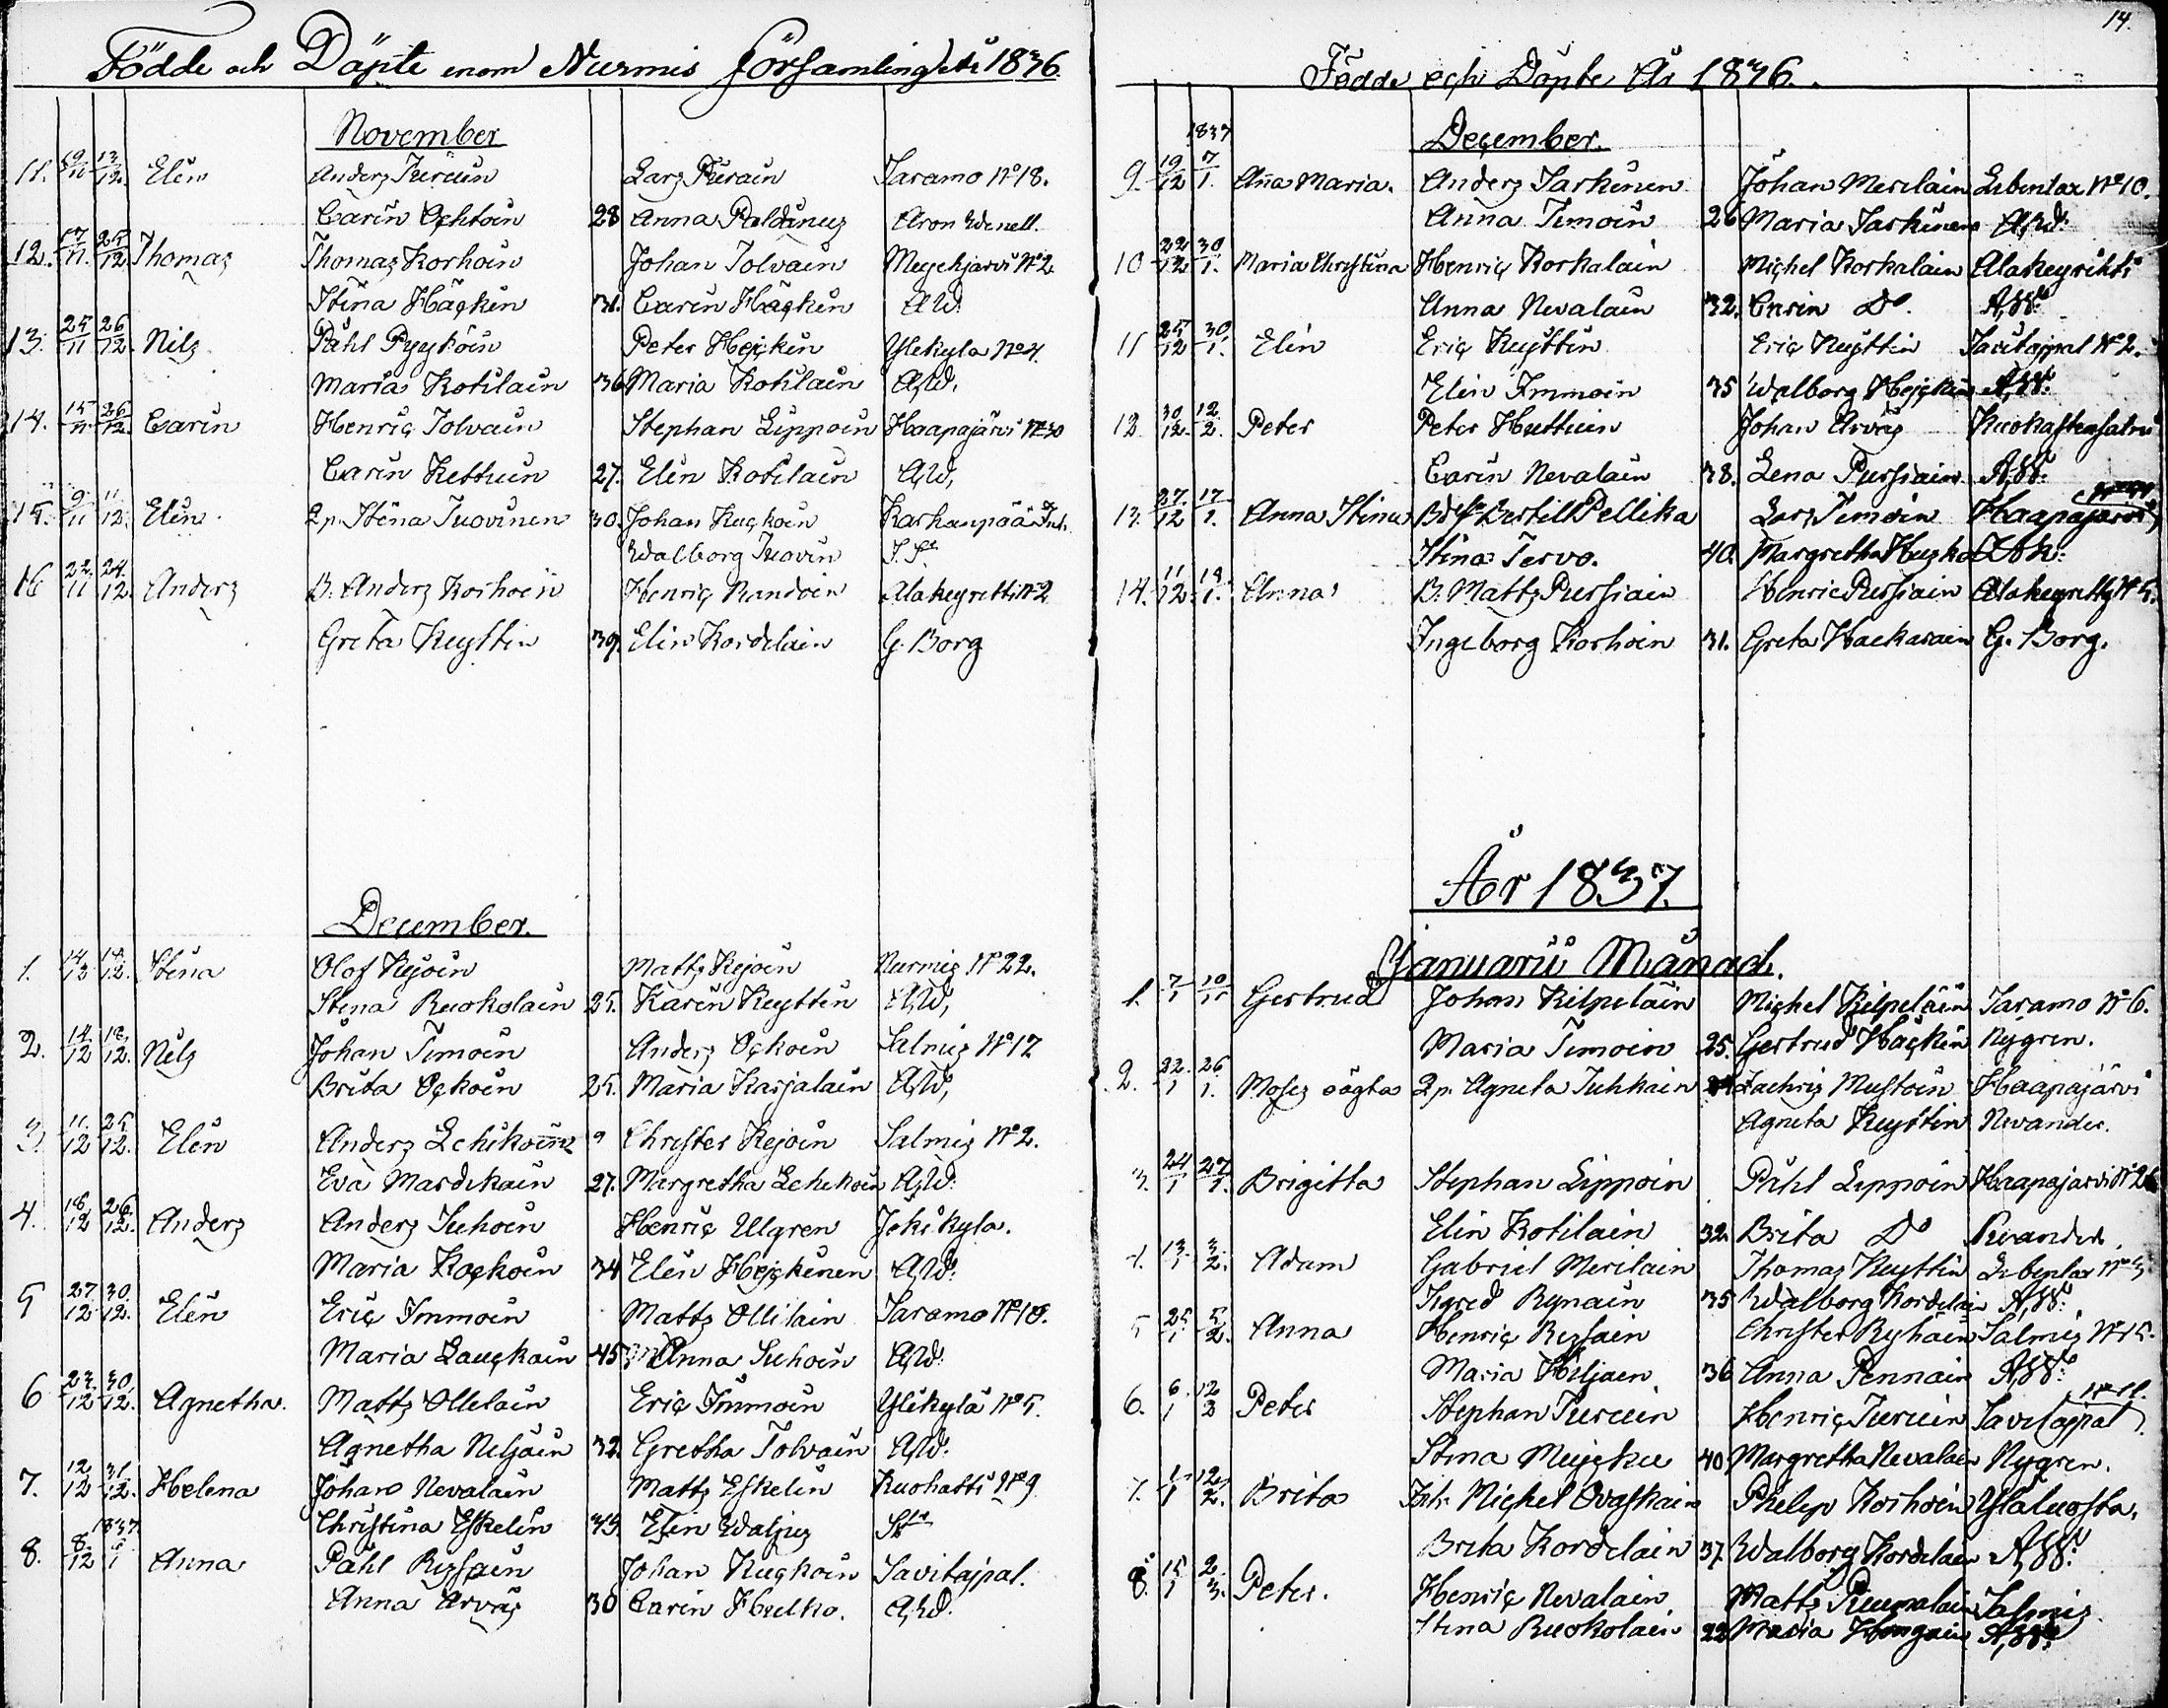 Födde och Döpte inom Nurmis församling åhr 1836.
November
11. 29/11 13/12. Elin Anders Turuin Lars Turain Saramo No 18.
Carin Ochtoin 28 Anna Paldanus Aron Wenell.
12. 17/11. 25/12 Thomas Thomas Korhoin Johan Tolvain No 2
Stina Häckin 31. Carin Häckin A,W
13. 25/11 26/12. Nils Påhl Pyyköin Peter Heickin Ylikyla No 4
Maria Kotilain 36 Maria Kotilain A,W,
14. 15/11. 26/12. Carin Henric Tolvain Stephan Lippoin Haapajärvi No 30
Carin Kettuin 27. Elin Kotilain A,W,
15. 9/11 11/12. Elin Qp. Stina Tuovinen 30. Johan Kuckoin Karhunpää Inh.
Walborg Tuovin
16 22/11 24/12. Anders B. Anders Korhoin Henric Randoin Alakeyritti No 2
Greta Keyttin 39. Elin Kordelain G. Borg
December.
1. 14/12 18/12. Stina Olof Kejoin Matts Kejoin Nurmis No 22.
Stina Ruokolain 25. Karin Keyttin A,W,
2. 14/12 18/12. Nils Johan Timoin Anders Ockoin Salmis No 12
Brita Ockoin 25. Maria Karjalain A,W,
3. 11./12 25/12. Elin Anders Lehikoin Christer Kejoin Salmis No 2.
Eva Mardikain 27. Margretha Lehikoin A,W:
4. 18/12 26/12. Anders Anders Suhoin Henric Ulgren Jokikyla.
Maria Kockoin 34 Elin Heickinen A,W:
5 27/12 30/12. Elin Eric Immoin Matts Ollilain Saramo No 10.
Maria Lauckain 45 Anna Suhoin A,W:
6 23/12 30/12. Agnetha. Matts Ollelain Eric Immoin Ylikylä No 5.
Agnetha Niljain 32. Gretha Tolvain A,W:
7. 12/12 31/12. Helena Johan Nevalain Matts Eskelin Kuohatti No 9
Christina Eskelin 35. Elin Waljus
1837.
8. 8/12 /1 Anna Påhl Ryssain Johan Kuckoin Savitajpal.
Anna Arvas 30 Carin Hulko. A,W.
14.
Födde och Döpte År 1836.
1837
December.
9. 19/12 7/1. Anna Maria. Anders Sarkinen Johan Merilain Libentax No 10.
Anna Timoin 26 Maria Sarkinen A,W:
10 22/12 30/1. Maria Christina Henric Korkalain Michel Korkalain Alakeyritti
Anna Nevalain 32. Carin Do. A,W:
11 25/12 30/1. Elin Eric Kuyttin Eric Kuyttin Savitajpal No 2.
Elin Immoin 35 Walborg Hejckin A,W:
12 30/12. 12/2. Peter Peter Huttuin Johan Arvas Kuokastensalmi
Carin Nevalain 38. Lena Pursiain A,W:
13. 27/12 17/1. Anna Stina Bertill Pellika Lars Timoin Haapajarvi
Stina Tervo. 40. Margretha
14. 11/12. 18/1. Anna B. Matts Pursiain Henric Pursiain Alakeyritty No 5.
Ingeborg Korhoin 31. Greta Hackarain G. Borg.
År 1837.
Januarii Månad.
1. 7/1 10/1 Gertrud Johan Kilpelain Michel Kilpeläin Saramo No 6.
Maria Timoin 25. Gertrud Häckin Nygren.
2. 22/1 26/1. Moses oägta Qp. Agneta Tuhkain Zachris Mustoin Haapajärvi
Agneta Keyttin Nevander.
3. 24/1 27/1. Brigitta Stephan Lippoin Påhl Lippoin Haapajarvi No 26
Elin Kotilain 32. Brita Do Nevander.
4. 13/1 3/2. Adam Gabriel Merilain Thomas Keyttin Libentax No 3
Sigred Rynain 35 Walborg Kordelain A,W:
5 25/1 5/2. Anna Henric Ryssain Christer Ryhäin Salmis No 15.
Maria Hiljaen 36 Anna Pennain A,W:
6. 6/1 12/2 Peter Stephan Turuin Henric Turuin Savitajpal No 11.
Stina Mujcku 40 Margretha Nevalain Nygren.
7. 1/1 12/2. Brita Inh. Michel Ovaskain Philip Korhoin Ylaluosta.
Brita Kordelain 37. Walborg Kordelain A,W:
8. 15/1 2/3. Peter. Henric Nevalain Matts Piumalain Salmis
Stina Ruokolain 22 Maria A,W: